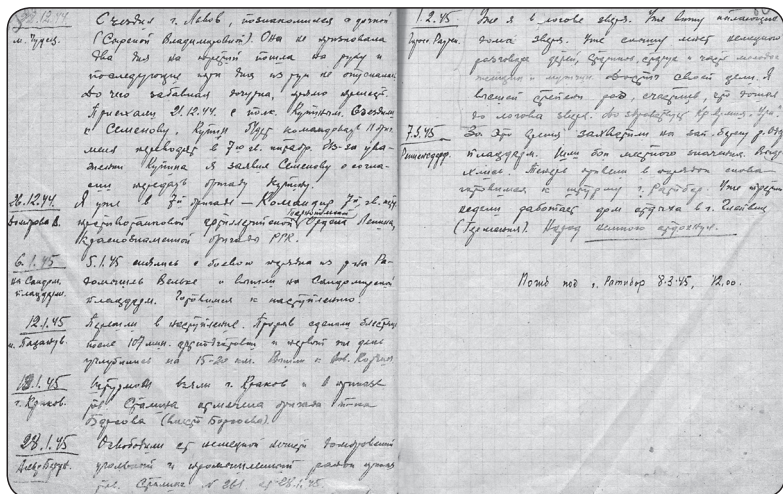 22.12.44
м. Чудец.
Съездил г. Львов, познакомился с дочкой
(Софией Владимировной). Она не признавала
два дня на третий пошла на руки и
последующие три дня из рук не отпускала
До чего забавная дочурка, словно
Приехали 21.12.44 с полк. Купиным. Съездили
к Семенову. Купин будет командовать 11 бр.
меня переводят в 7-ю гв. Из-за ува-
жения Купина я заявил Семенову о согла-
сии передать бригаду Купину.
26.12.44
Домброва В.
Я уже в 7-й бригаде – Командир 7-й гв. ист.
противотанковой артиллерийской Ордена Ленина
Краснознаменной бригады РГК.
6.1.45
на Сандом.
плацдарм.
5.1.45 снялись с боевого порядка из р-на Ра-
домысль Вельке и вышли на Сандомирский
плацдарм. Готовимся к наступлению.
12.1.45
Перешли в наступление. Прорыв сделали быстро
после 107 мин. артподготовки и первый же день
углубились на 15-20 км. Вышли к
19.1.45
г. Краков.
Штурмом взяли г. Краков и в приказе
тов. Сталина отмечена бригада п-ка
Борсова (вместо Борсоева).
28.1.45
Освободили от немецкой нечисти домбровский
угольный и промышленный район приказ
тов. Сталина № 261 от 28.1.45.
1.2.45
Уже я в логове зверя. Уже вижу пылающие
дома зверя. Уже слышу лепет немецкого
разговора детей, стариков, старух и часть молодых
женщин и мужчин. достиг своей цели. Я
высшей степени рад, счастлив, что дошел
до логова зверя. Да здравствует Кр. Армия. Ура.
7.3.45
За это время захватили на зап. берегу р. Одер
плацдарм. Шли бои местного значения.
Теперь привели в порядок снова
готовимся к штурму г. Ратибор. Уже
недели работает дом отдыха в г. Глейвиц
(Германия). Народ немного отдохнул.
Погиб под г. Ратибор 8-3-45, 12.00.